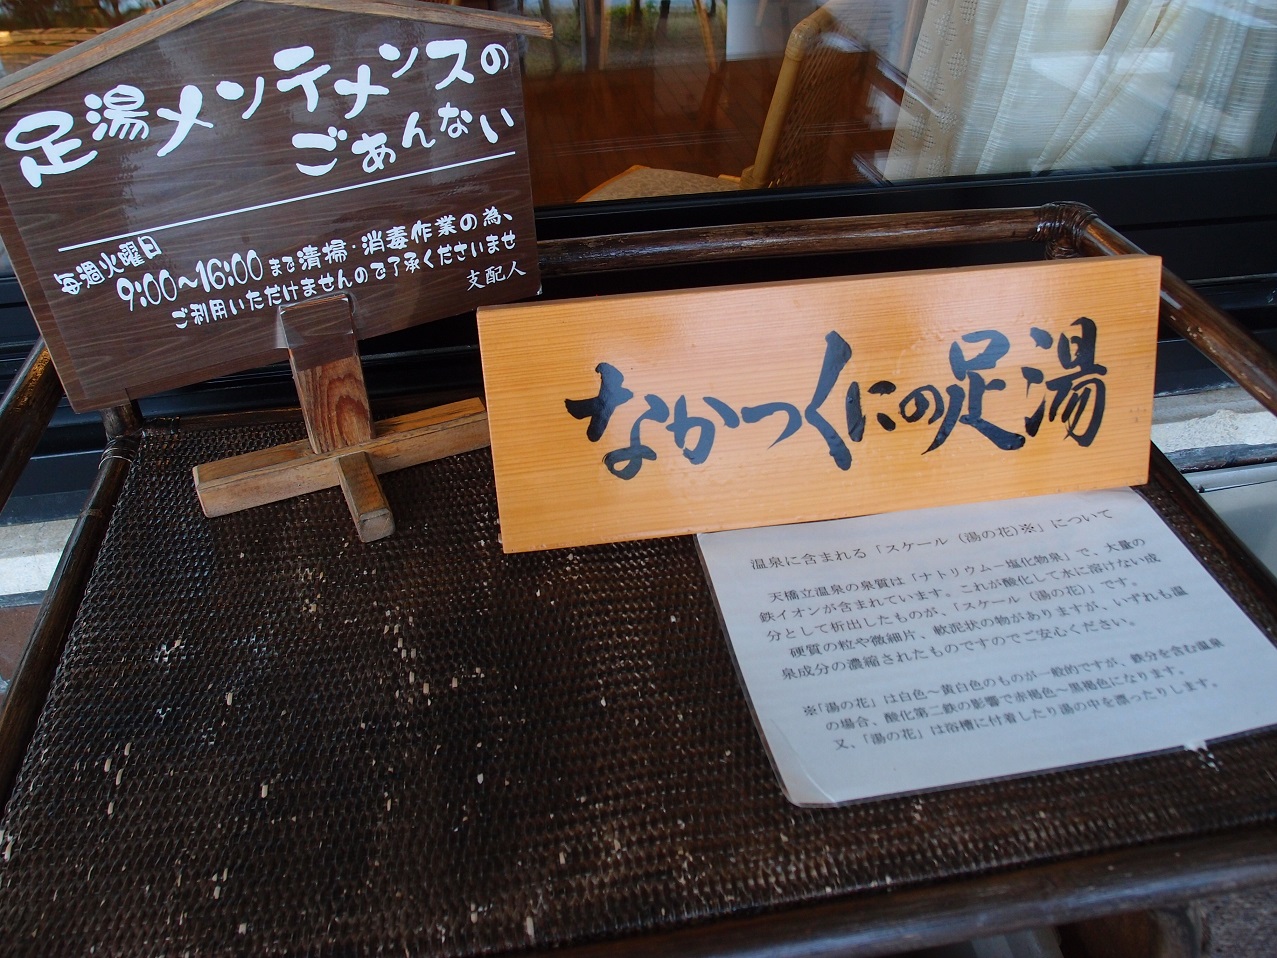 足湯メンテメンスの
ごあんない
毎週火曜日
9:00～16:00まで清掃・消毒作業の為、
ご利用いただけませんので了承くださいませ
支配人
なかつくにの足湯
温泉に含まれる「スケール（湯の花)※」について
天橋立温泉の泉質は「ナトリウムー塩化物泉」で、大量の
鉄イオンが含まれています。これが酸化して水に溶けない成
分として析出したものが、「スケール（湯の花）」です。
硬質の粒や微細片、軟泥状の物がありますが、いずれも温
泉成分の濃縮されたものですのでご安心ください。
※「湯の花」は白色～黄白色のものが一般的ですが、鉄分を含む温泉
の場合、酸化第二鉄の影響で赤褐色～黒褐色になります。
又、「湯の花」は浴槽に付着したり湯の中を漂ったりします。